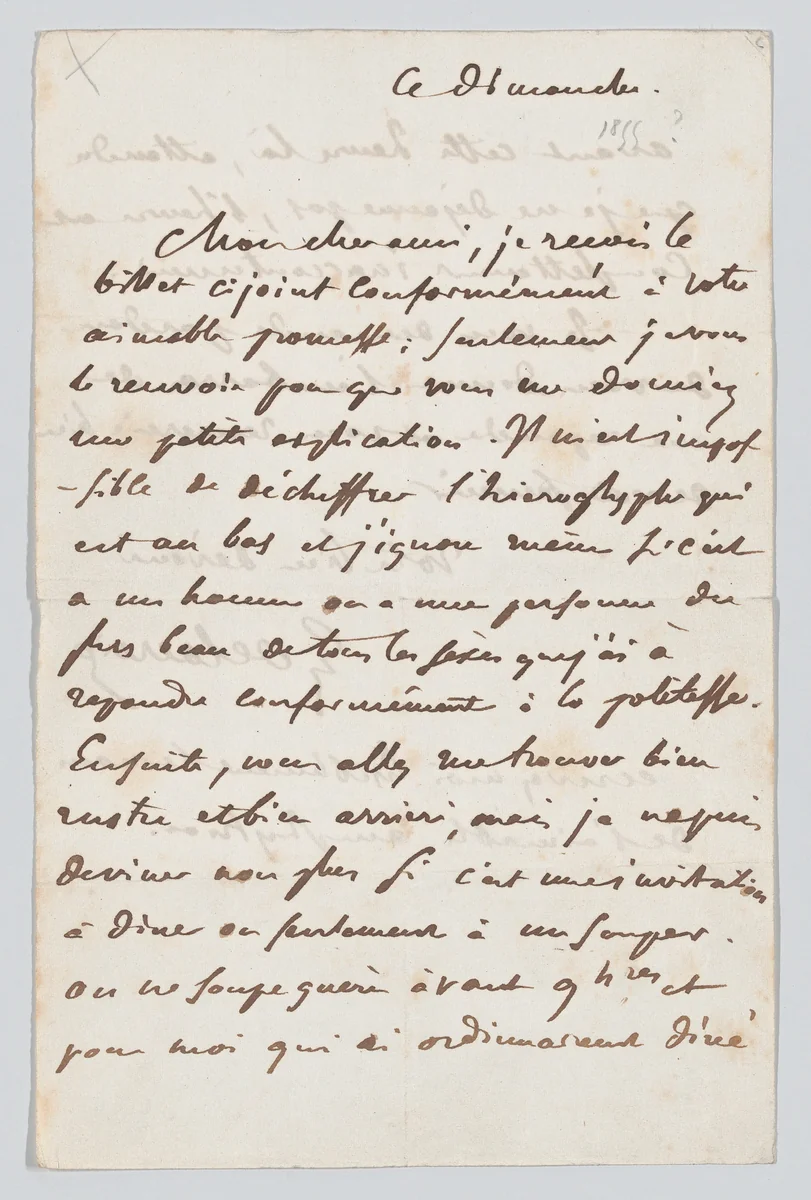 Ce Dimanche.
1855 ?
Mon cher ami, je reçois le
billet ci joint conformément à votre
aimable promesse; seulement je vous
le renvoie pour que vous me donniez
une petite explication. Il m'est impos
-sible de déchiffrer l'hieroglyphe qui
est au bas et j'ignore même si c'est
a un homme ou a une personne du
plus beau de tous les sexes que j'ai à
repondre conformément à la politesse.
Ensuite, vous allez me trouver bien
rustre et bien arriéré, mais je ne puis
deviner non plus si c'est une invitation
à diner ou seulement à un souper.
On ne soupe guère avant 9 hres et
pour moi qui ai ordinairement diné